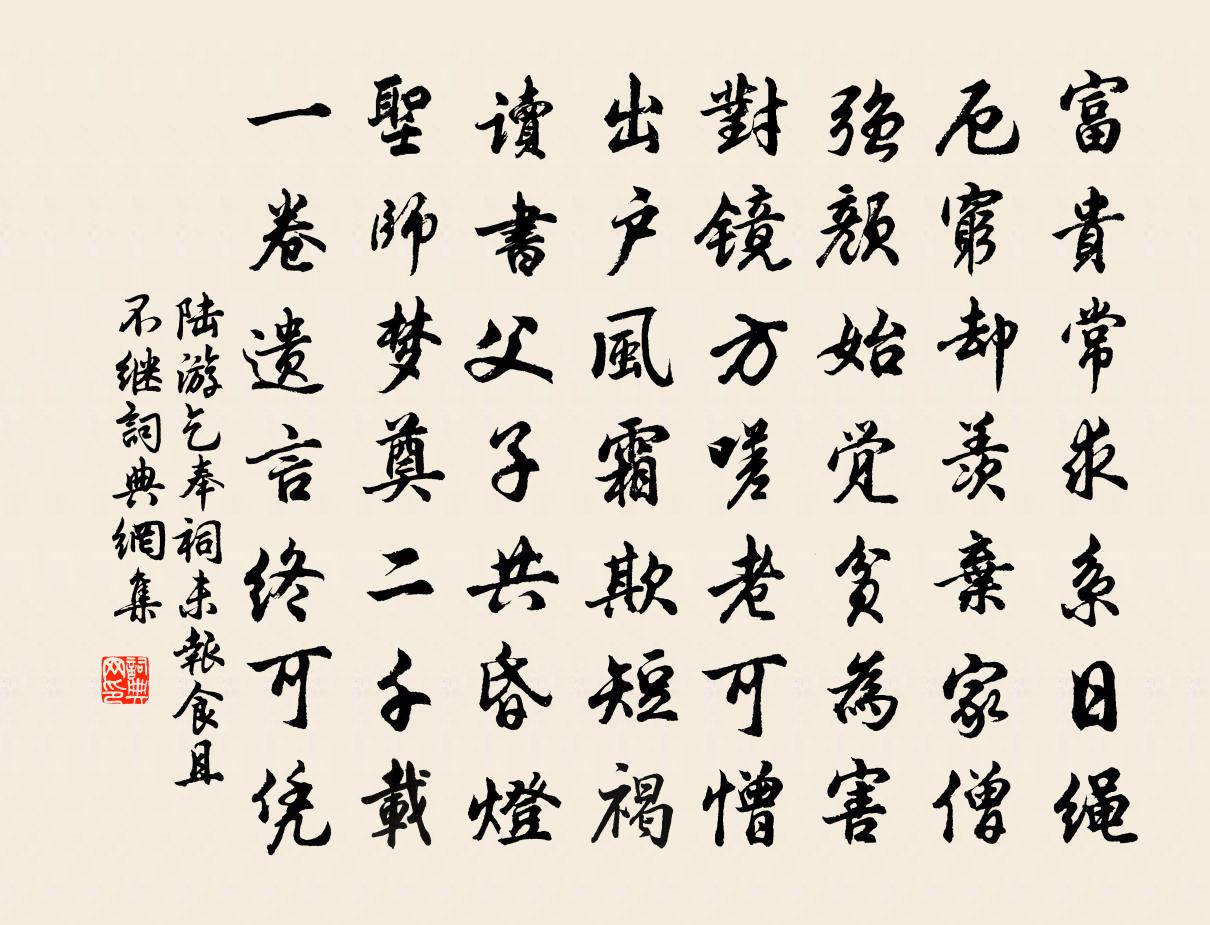 富貴常求系日绳
厄窮却羡棄家僧
強颜始觉贫為害
對镜方嗟老可憎
出户風霜欺短褐
讀書父子共昏燈
聖師梦奠二千載
一卷遗言终可凭
陆游乞奉祠未報食且
不继詞典網集
詞典网印